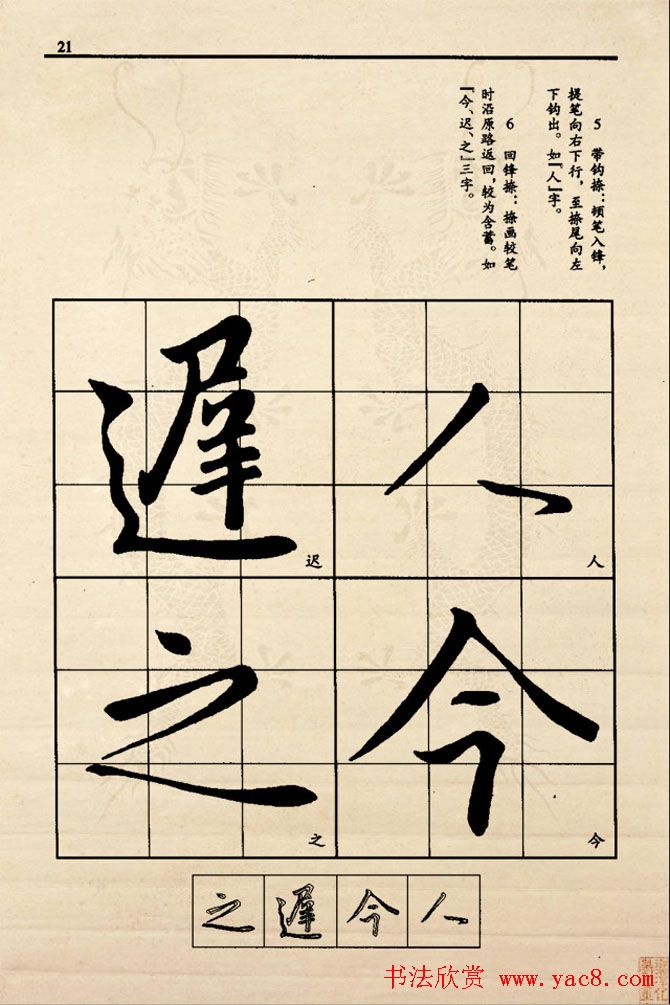 21
5 带钩捺：顿笔入锋，
提笔向右下行，至捺尾向左
下钩出。如『人』字。
6 回锋捺：捺画较笔
时沿原路返回，较为含蓄。如
『今、迟、之』三字。
人
人
今
今
遲
迟
之
之
人
今
遲
之
书法欣赏 www.yac8.com